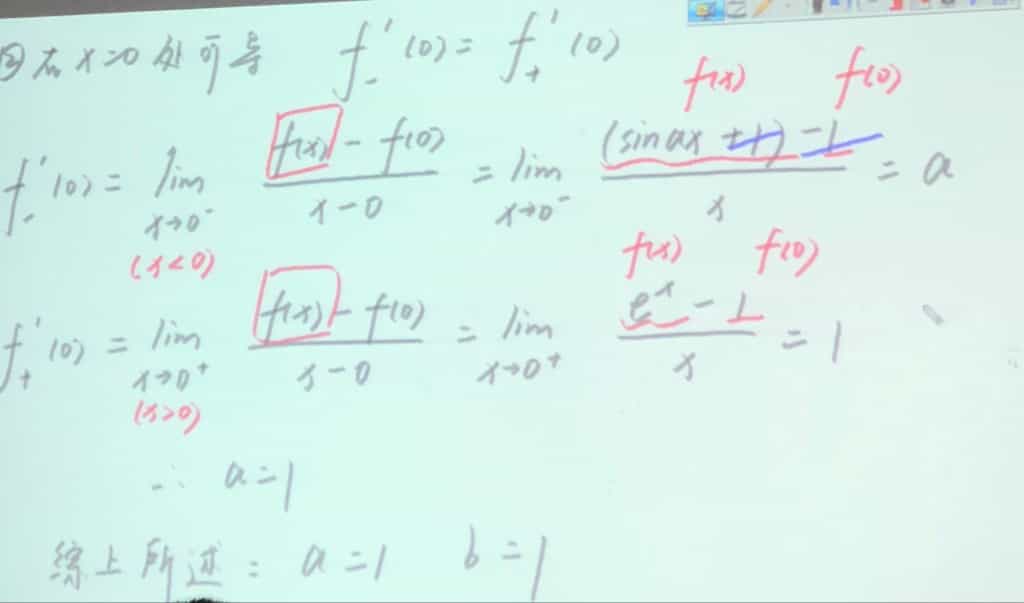 ②在 x=0 处可导 f₋'(0) = f₊'(0)
f(x) f(0)
f₋'(0) = lim x→0⁻ (x<0) (f(x) - f(0))/(x-0) = lim x→0⁻ ((sin ax + 1) - 1)/x = a
f(x) f(0)
f₊'(0) = lim x→0⁺ (x>0) (f(x) - f(0))/(x-0) = lim x→0⁺ (eˣ - 1)/x = 1
∴ a=1
综上所述: a=1 b=1